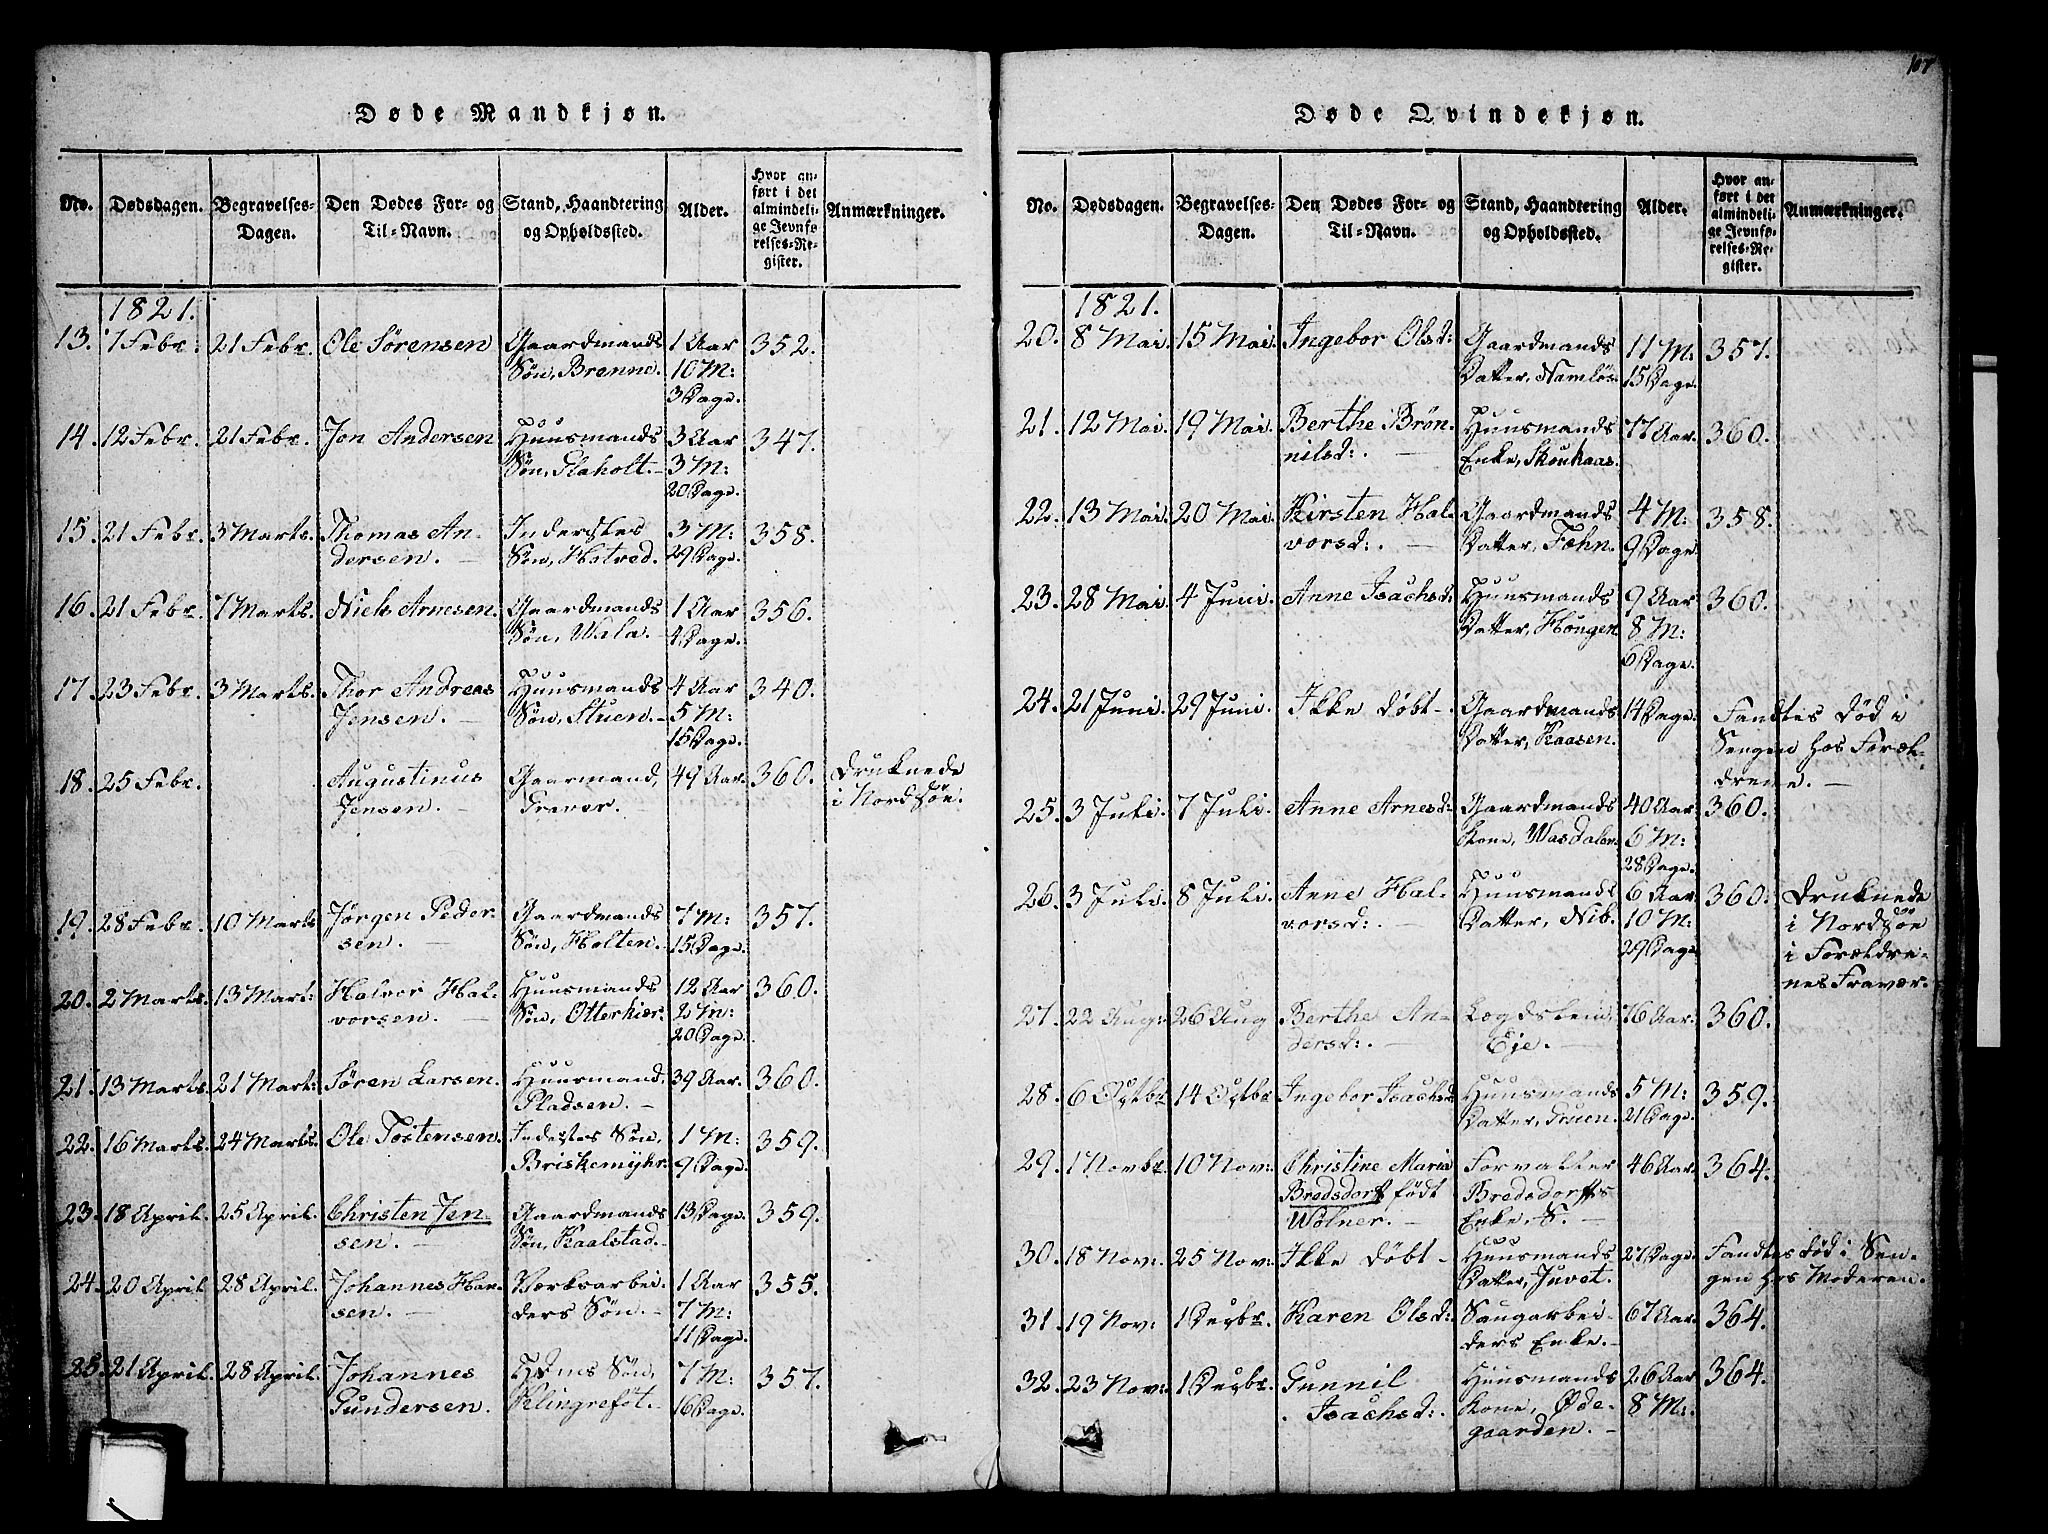 107
Døde Mandkjøn.
No. Dødsdagen. Begravelses-Dagen. Den Dødes For- og Til-Navn. Stand, Haandtering og Opholdssted. Alder. Hvor anført i det almindelige Jevnførelses-Register. Anmærkninger.
1821.
13. 7 Febr. 21 Febr. Ole Sørensen Gaardmands 1 Aar 352.
Søn, Brenne. 10 M:
3 Dage.
14. 12 Febr. 21 Febr. Jon Andersen Huusmands 3 Aar 347.
Søn, Flaholt. 3 M:
20 Dage.
15. 21 Febr. 3 Marts. Thomas An- Inderstes 3 M: 358.
dersen. Søn, Hatved. 29 Dage.
16. 21 Febr. 7 Marts. Niels Arnesen. Gaardmands 1 Aar 356.
Søn, Wala. 4 Dage.
17. 23 Febr. 3 Marts. Thor Andreas Huusmands 4 Aar 340.
Jensen. Søn, Stuen. 5 M:
15 Dage.
18. 25 Febr. Augustinus Gaarmand, 49 Aar. 360. Druknede
Jensen. Graver. i Nordsjøe.
19. 28 Febr. 10 Marts Jørgen Peder- Gaardmands 7 M: 357.
sen. Søn, Holten. 15 Dage.
20. 2 Marts. 13 Mart: Halvor Hal- Huusmands 12 Aar 360.
vorsen. Søn, Otterkier. 2 M:
20 Dage.
21. 13 Marts. 21 Mart: Søren Larsen. Huusmand, 39 Aar. 360.
Pladsen.
22. 16 Marts. 24 Marts. Ole Tostensen. Inderstes Søn, 1 M: 359.
Briskemyhr. 9 Dage.
23. 18 April. 25 April. Christen Jen- Gaardmands 13 Dage. 359.
sen. Søn, Kaalstad.
24. 20 April 28 April. Johannes Han- Værksarbei- 1 Aar 355.
sen. ders Søn. 7 M:
11 Dage.
25. 21 April. 28 April. Johannes Søn, 7 M: 357.
Gundersen. Klingrefot. 16 Dage.
Døde Qvindekjøn.
No. Dødsdagen. Begravelses-Dagen. Den Dødes For- og Til-Navn. Stand, Haandtering og Opholdssted. Alder. Hvor anført i det almindelige Jevnførelses-Register. Anmærkninger.
1821.
20. 8 Mai. 15 Mai. Ingebor Olsd: Gaardmands 11 M: 357.
Datter, Namløs. 15 Dage.
21. 12 Mai. 19 Mai. Berthe Brøn- Huusmands 77 Aar. 360.
nilsd: Enke, Skouhaas.
22. 13 Mai. 20 Mai. Kirsten Hal- Gaardmands 4 M: 358.
vorsd: Datter, Fæhn. 9 Dage.
23. 28 Mai. 4 Juni. Anne Isachsd: Huusmands 9 Aar 360.
Datter, Hougen. 8 M:
6 Dage.
24. 21 Juni. 29 Juni. Ikke døbt Gaardmands 14 Dage. Fandtes død i
Datter, Kaasen. Sengen hos Foræl-
drene.
25. 3 Juli. 7 Juli. Anne Arnesd: Gaardmands 40 Aar 360.
Kone, Wasdalen. 6 M:
28 Dage.
26. 3 Juli. 8 Juli. Anne Hal- Huusmands 6 Aar 360: Druknede
vorsd: Datter, Nib. 10 M: i Nordsjøe
29 Dage i Forældre-
nes Fravær.
27. 22 Aug: 26 Aug Berthe An- Lægdslem, 76 Aar. 360.
dersd: Eie.
28. 6 Octbr 14 Octbr Ingebor Isachsd Huusmands 5 M: 359.
Datter, Gruen. 21 Dage.
29. 1 Novbr. 10 Nov: Christine Maria Forvalter 46 Aar. 364.
Bredsdorf født Bredsdorffs
Wølner. Enke, S.
30. 18 Nov: 25 Nov: Ikke døbt Huusmands 27 Dage. Fandtes død i Sen-
Datter, Juvet. gen hos Moderen.
31. 19 Nov: 1 Decbr. Karen Olsd: Saugarbei- 67 Aar. 364.
ders Enke.
32. 23 Nov: 1 Decbr. Gunnil Huusmands 26 Aar 364.
Isachsd: Kone, Øde- 8 M:
gaarden.